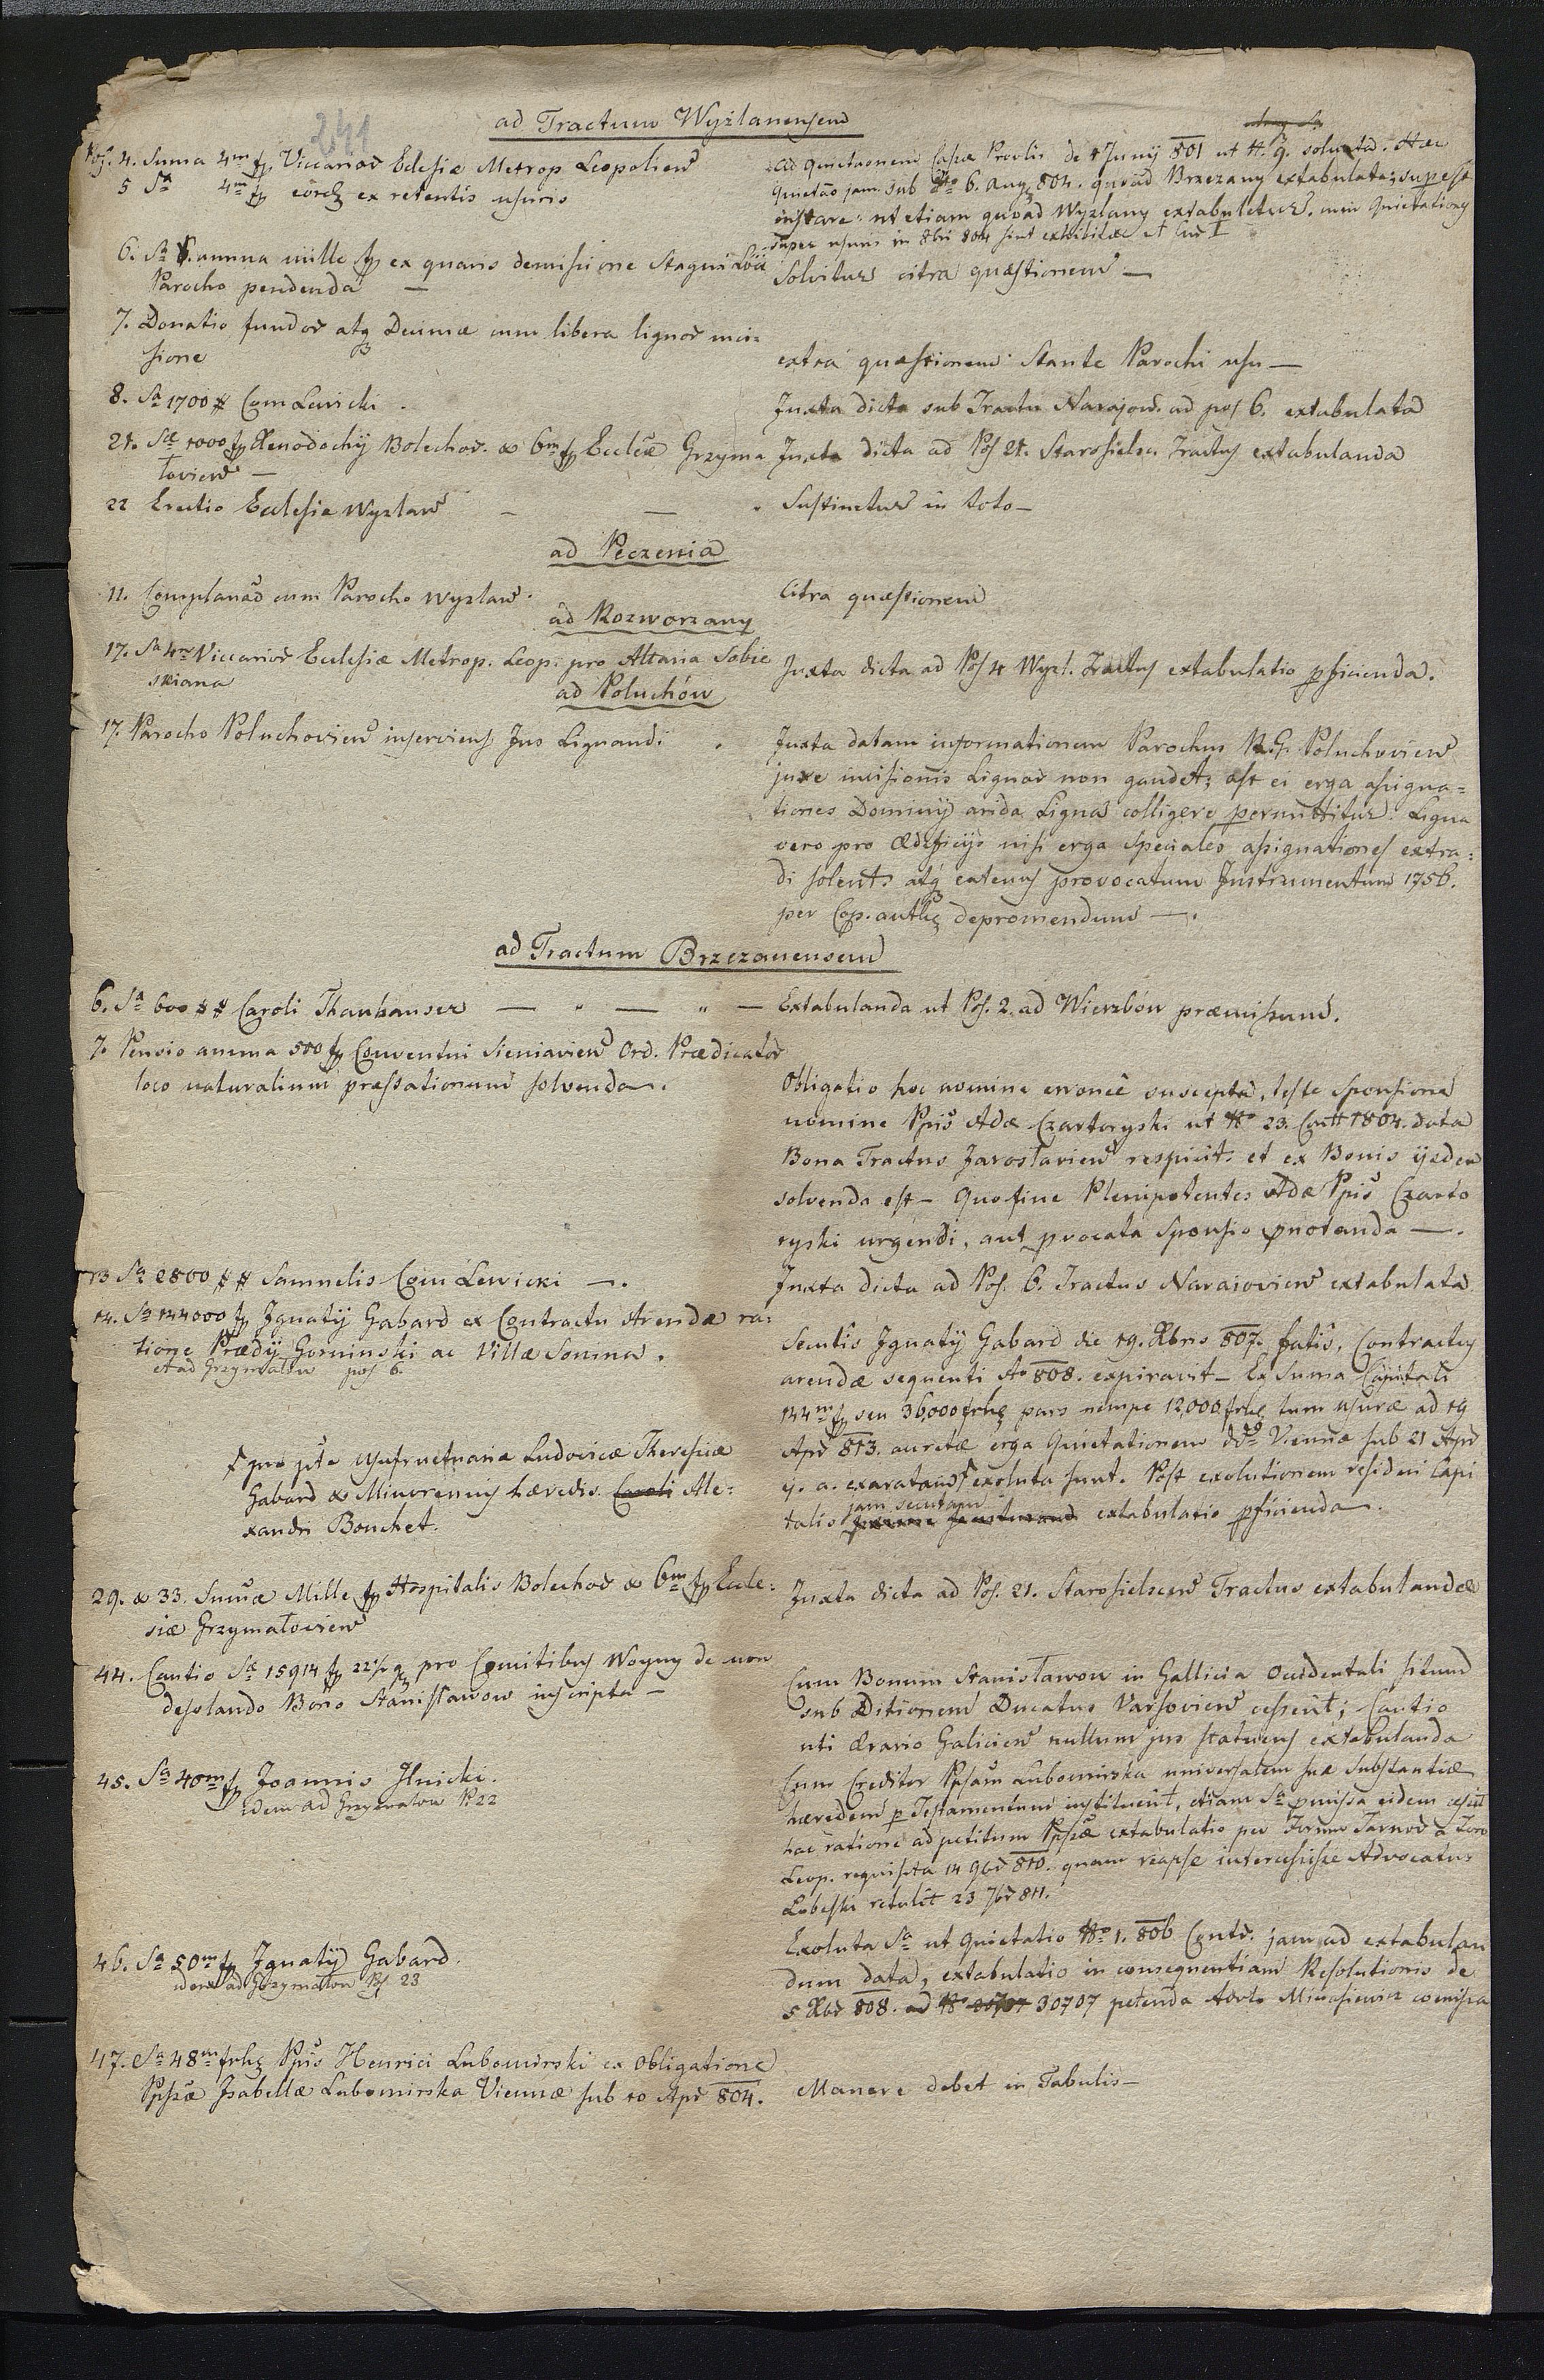 241
ad Tractum Wyżlanensem
Pos. 4. Suma 4m fp Viccarior Eclesiæ Metrop Leopolien
5 Sa 4m fp eordz ex retentis usuris
ad quietaonem Cassæ Provlis de 4 Junij 801 ut N. 9. soluta. Hæc
Quietão jam sub Nro 6. Aug 804. quoad Brzezany extabulata; superest
instare: ut etiam quoad Wyzlany extabuletur. cum Quietationes
super usuris in 8bri 804 sint exhibitæ
6. Sa annua mille fp ex quavis demissione Stagni
Parocho pendenda —
Solvitur citra quæstionem —
7. Donatio fundor atq Decimæ cum libera lignor inci=
sione
extra quæstionem stante Parochi usu —
8. Sa 1700 # Com Lewicki .
Juxta dicta sub Tractu Narajow. ad pos 6. extabulata
21. Sæ 1000 fp Xenodochij Bolechov. & 6m fp Eccleæ Grzyma
lovien —
Juxta dicta ad Pos 21. Starosielsc. Tractus extabulanda
22 Erectio Ecclesiæ Wyzlan — — .
Sustinetur in toto —
ad Peczenia
11. Complanão cum Parocho Wyzlan .
Citra quæstionem
ad Rozworzany
17. Sa 4m Viccarior Ecclesiæ Metrop. Leop. pro Altaria Sobie
skiana
Juxta dicta ad Pos 4 Wyzl. Tractus extabulatio pficienda.
ad Poluchów
17. Parocho Poluchovien inserviens Jus Lignandi .
Juxta datam informationem Parochus R. G. Poluchovien
jure incisionis Lignor non gaudet; ast ei erga assigna=
tiones Dominij arida Ligna colligere permittitur. Ligna
vero pro ædificijs nisi erga speciales assignationes extra=
di solent. atq eatenus provocatum Instrumentum 1756.
per Cop. authz depromendum — .
ad Tractum Brzezanensem
6. Sa 600 ## Caroli Thanhauser — " — " —
Extabulanda ut Pos. 2. ad Wierzbów præmissum.
7. Pensio annua 500 fp Conventui Sieniavien Ord. Prædicator
loco naturalium præstationum solvenda .
Obligatio hoc nomine erroneè suscepta, teste Sponsione
nomine Ppis Adæ Czartoryski ut No 23. Contr 1804. data
Bona Tractus Jaroslavien respicit. et ex Bonis ijsdem
solvenda est — Quo fine Plenipotentes Adæ Ppis Czarto
ryski urgendi, aut pvocata Sponsio pnotanda — .
13 Sa 2800 ## Samuelis Com Lewicki — .
Juxta dicta ad Pos. 6. Tractus Naraiovien extabulata
14. Sa 144000 fp Ignatij Gabard ex Contractu Arendæ ra=
tione Prædij Gorninski ac Villæ Sonina .
et ad Grzymałow pos 6.
Secutis Ignatij Gabard die 19. Xbris 807. fatis, Contractus
arendæ sequenti Ao 808. expiravit — Ex Suma Capitali
144m fp seu 36,000 frhz pars nempe 12,000 frhz tum usuræ ad 19
Apr 813. auretæ erga Quietationem ddo Viennæ sub 21 Apr
ej. a. exaratam exoluta sunt. Post exolutionem residui Capi
talis jam secutam extabulatio pficienda .
pro pte usufructuaria Ludovicæ Theresiæ
Gabard & Minorennis hæredis Caroli Ale=
xandri Bouchet.
29. & 33. Sumæ Mille fp Hospitalis Bolechov & 6m fp Eccle=
siæ Grzymałovien
Juxta dicta ad Pos. 21. Starosielscen Tractus extabulandæ
44. Cautio Sæ 15914 fp 22½ g pro Comitibus Woyny de non
desolando Bono Stanisławow inscripta —
Cum Bonum Stanisławow in Gallicia Occidentali situm
sub Ditionem Ducatus Varsovien cesserit; Cautio
uti Ærario Galicien nullum jus statuens extabulanda
45. Sa 40m fp Joannis Ilnicki .
idem ad Grzymałow P. 22
Cum Creditor Ppsam Lubomirska universalem suæ Substantiæ
hæredem p Testamentum instituerit, etiam Sa pmissa eidem cessit
hac ratione ad petitum Ppssæ extabulatio per Forum Tarnov a Foro
Leop. requisita 14 9br 810. quam reapse intercessisse Advocatus
Lubeski retulit 23 7br 811.
46. Sa 50m fp Ignatij Gabard.
idem ad Grzymałow Ps 23
Exoluta Sa ut Quietatio No 1. 806 Contr. jam ad extabulan
dum data, extabulatio in consequentiam Resolutionis de
5 Xbr 808. ad No 30707 petenda Advto Minasiewicz comissa
47. Sa 48m frhz Ppis Henrici Lubomirski ex Obligatione
Ppssæ Isabellæ Lubomirska Viennæ sub 10 Apr 804.
Manere debet in Tabulis —